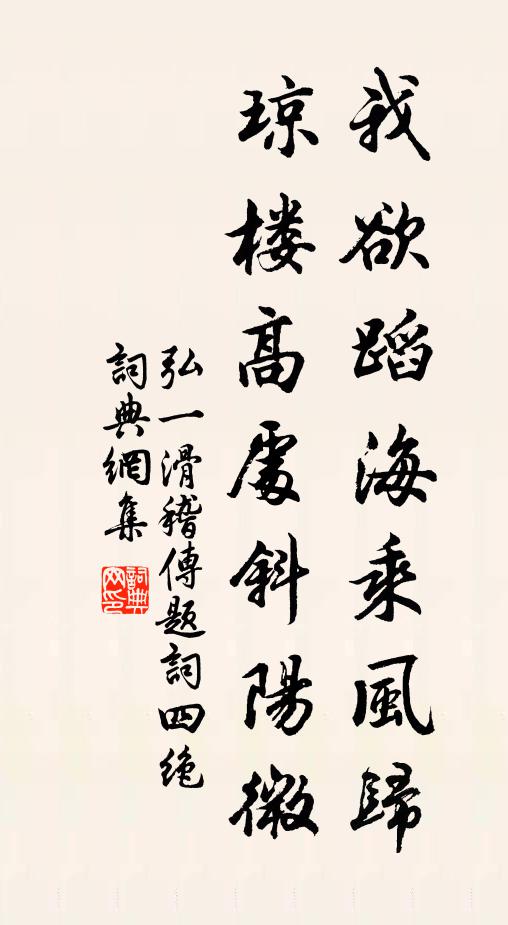 我欲蹈海乘風歸
琼楼高處斜陽微
弘一滑稽傳題詞四绝
詞典網集
詞典网印